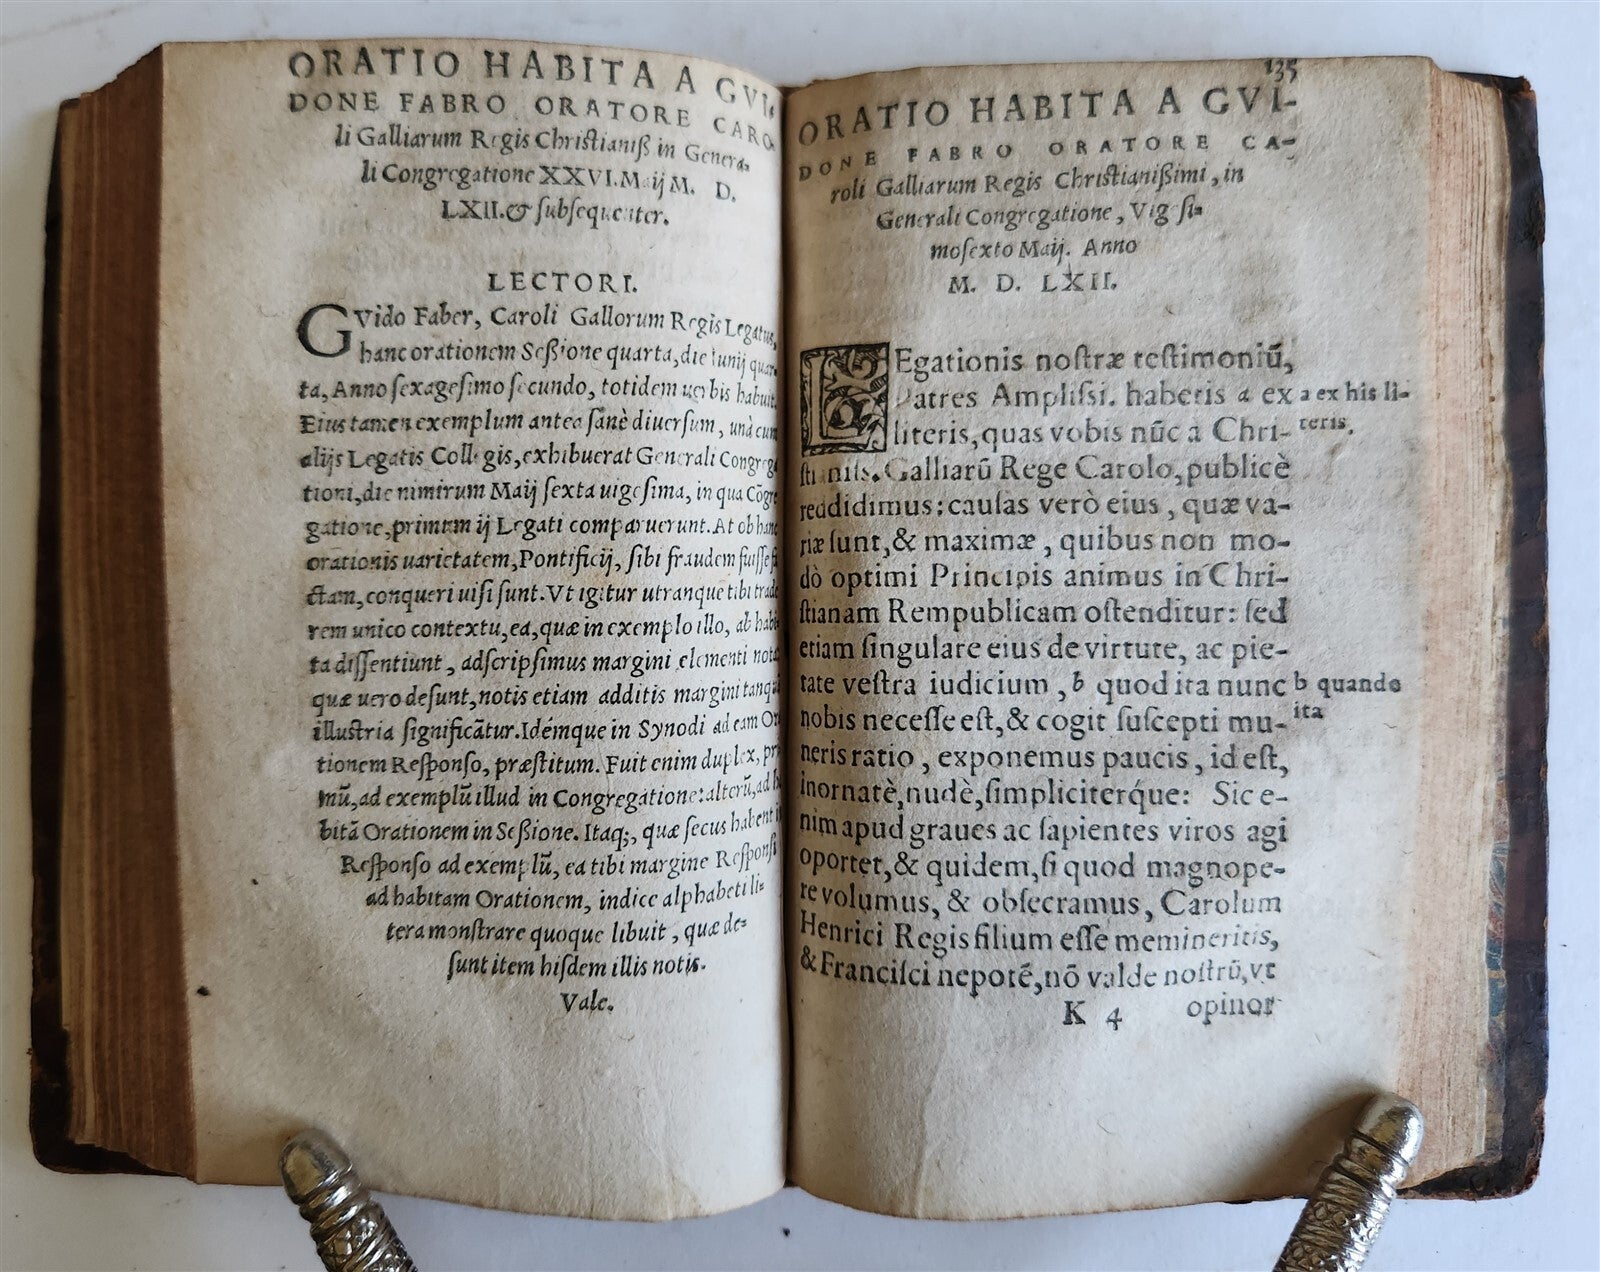 ORATIO HABITA A GVI-
DONE FABRO ORATORE CARO-
li Galliarum Regis Christianiß in Genera-
li Congregatione XXVI. Maij M. D.
LXII. & ſubſequenter.
LECTORI.
GVido Faber, Caroli Gallorum Regis Legatus,
hanc orationem Seßione quarta, die Iunij quar-
ta, Anno ſexageſimo ſecundo, totidem uerbis habuit.
Eius tamen exemplum antea ſanè diuerſum, unà cum
alijs Legatis Collegis, exhibuerat Generali Congrega
tioni, die nimirum Maij ſexta uigeſima, in qua Cõgre
gatione, primùm ij Legati comparuerunt. At ob hanc
orationis uarietatem, Pontificij, ſibi fraudem fuiſſe
ctam, conqueri uiſi ſunt. Vt igitur utranque tibi trade
rem unico contextu, ea, quæ in exemplo illo, ab habi
ta diſſentiunt, adſcripſimus margini elementi nota
quæ uero deſunt, notis etiam additis margini tanquã
illuſtria ſignificãtur. Idémque in Synodi ad eam
tionem Reſponſo, præſtitum. Fuit enim duplex, pri
mũ, ad exemplũ illud in Congregatione: alterũ, ad ha
bitã Orationem in Seßione. Itaq;, quæ ſecus habent
Reſponſo ad exemplũ, ea tibi margine Reſponſi
ad habitam Orationem, indice alphabeti li-
tera monſtrare quoque libuit, quæ de-
ſunt item hiſdem illis notis.
Vale.
135
ORATIO HABITA A GVI-
DONE FABRO ORATORE CA-
roli Galliarum Regis Chriſtianißimi, in
Generali Congregatione, Vigeſi-
moſexto Maij. Anno
M. D. LXII.
LEgationis noſtræ teſtimoniũ,
Patres Ampliſſi. habetis a ex a ex his li-
literis, quas vobis nũc a Chri- teris.
ſtianiſs. Galliarũ Rege Carolo, publicè
reddidimus: cauſas verò eius, quæ va-
riæ ſunt, & maximæ, quibus non mo-
dò optimi Principis animus in Chri-
ſtianam Rempublicam oſtenditur: ſed
etiam ſingulare eius de virtute, ac pie-
tate veſtra iudicium, b quod ita nunc b quando
nobis neceſſe eſt, & cogit ſuſcepti mu- ita
neris ratio, exponemus paucis, id eſt,
inornatè, nudè, ſimpliciterq́ue: Sic e-
nim apud graues ac ſapientes viros agi
oportet, & quidem, ſi quod magnope-
re volumus, & obſecramus, Carolum
Henrici Regis filium eſſe memineritis,
& Franciſci nepotẽ, nõ valde noſtrũ, vt
K 4 opinor